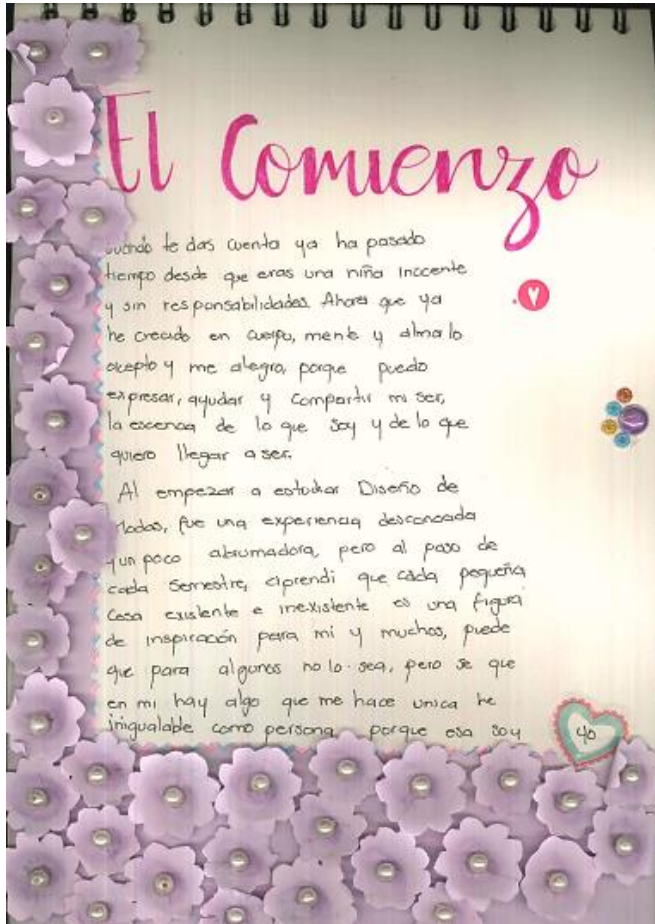 El Comienzo
cuando te das cuenta ya ha pasado
tiempo desde que eras una niña inocente
y sin responsabilidades. Ahora que ya
he crecido en cuerpo, mente y alma lo
acepto y me alegro, porque puedo
expresar, ayudar y compartir mi ser,
la escencia de lo que soy y de lo que
quiero llegar a ser.
Al empezar a estudiar Diseño de
Modas, fue una experiencia desconocida
y un poco abrumadora, pero al paso de
cada semestre, aprendi que cada pequeña
cosa existente e inexistente es una figura
de inspiración para mi y muchos, puede
que para algunos no lo sea, pero se que
en mi hay algo que me hace unica he
inigualable como persona porque esa soy
yo